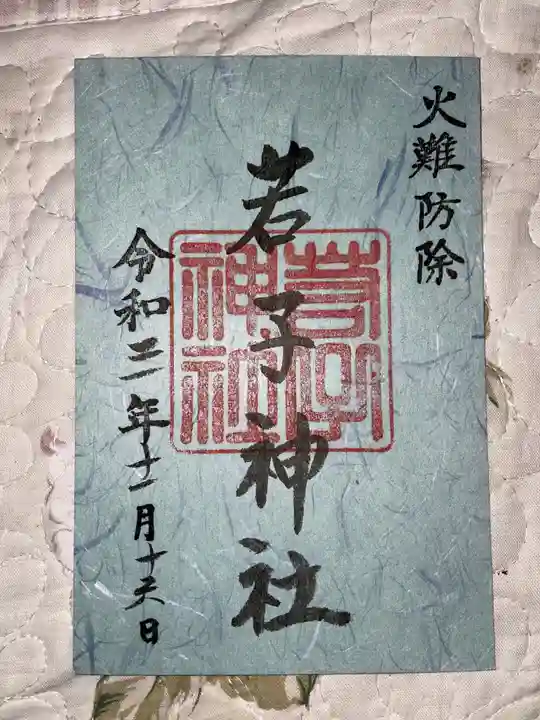 火難防除
若子神社
若子神社
令和三年十一月十六日